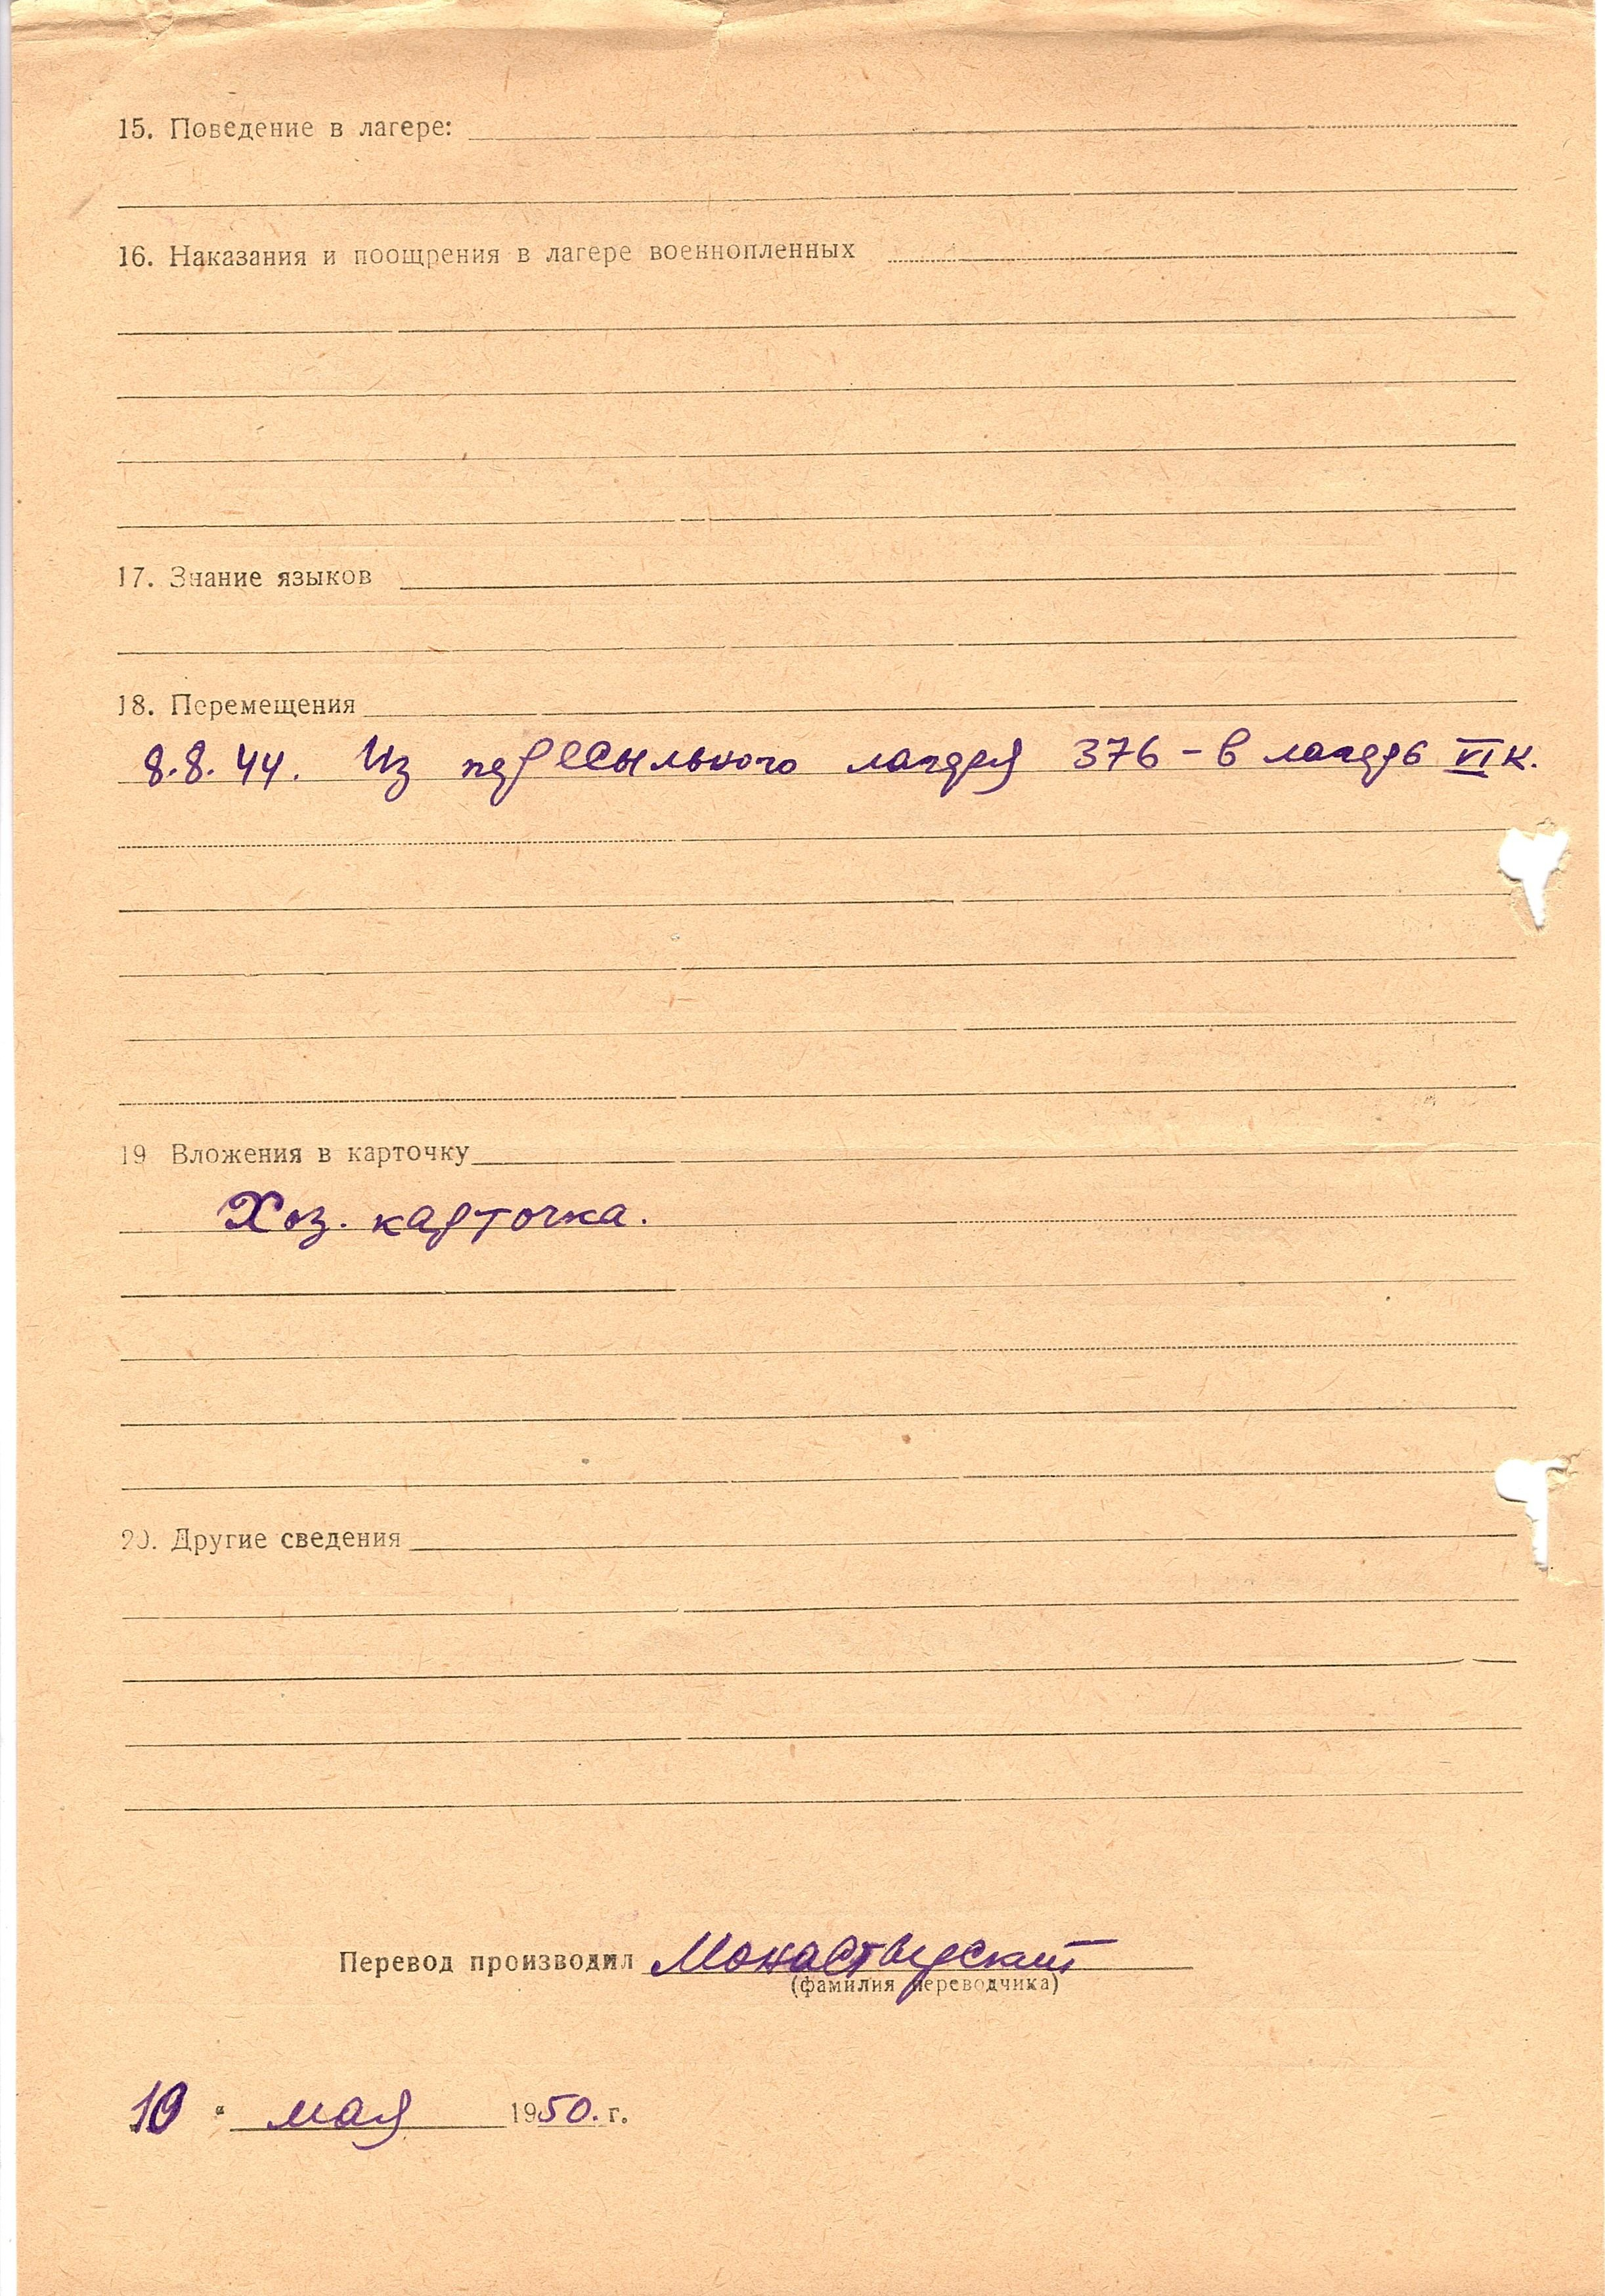 15. Поведение в лагере:
16. Наказания и поощрения в лагере военнопленных
17. Знание языков
18. Перемещения
8.8.44. Из пересыльного лагеря 376 – в лагерь VI К.
19 Вложения в карточку
Хоз. карточка.
20. Другие сведения
Перевод производил Монастырский
(фамилия переводчика)
10 " мая 1950. г.